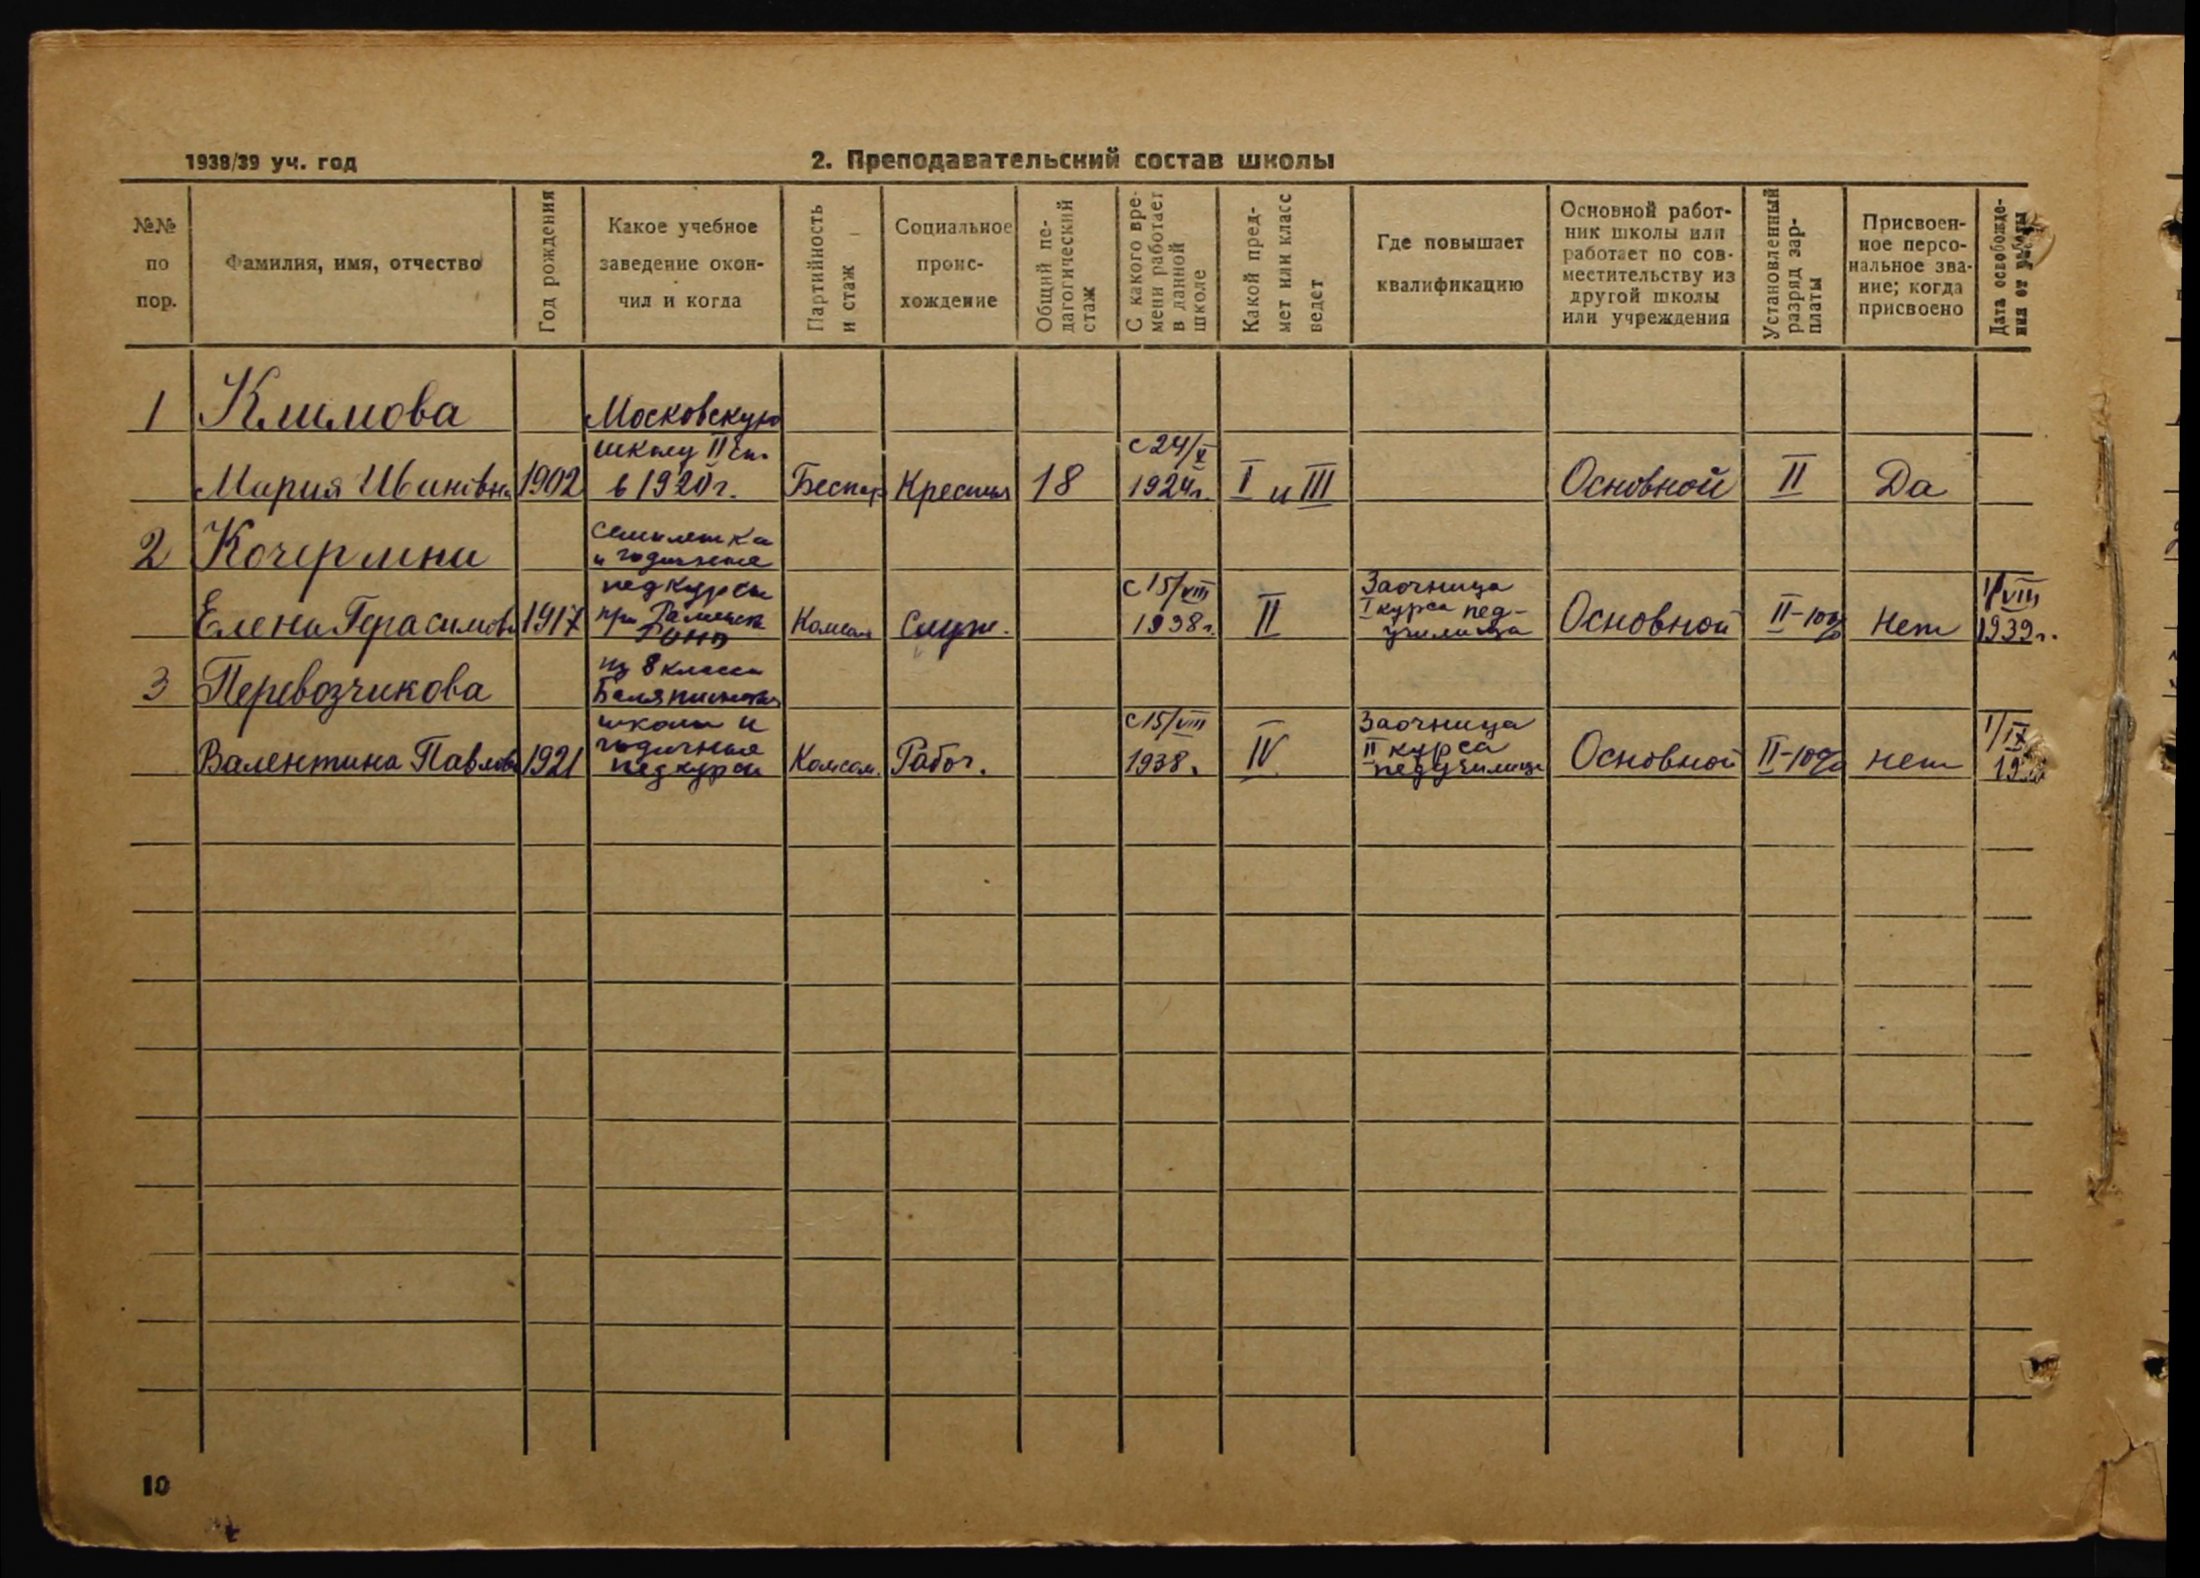 1938/39 уч. год
2. Преподавательский состав школы
№№
по
пор.
Фамилия, имя, отчество
Год рождения
Какое учебное
заведение окон-
чил и когда
Партийность
и стаж
Социальное
проис-
хождение
Общий пе-
дагогический
стаж
С какого вре-
мени работает
в данной
школе
Какой пред-
мет или класс
ведет
Где повышает
квалификацию
Основной работ-
ник школы или
работает по сов-
местительству из
другой школы
или учреждения
Установленный
разряд зар-
платы
Присвоен-
ное персо-
нальное зва-
ние; когда
присвоено
Дата освобожде-
ния от работы
1
Климова
Мария Ивановна
1902
Московскую
школу II ст.
в 1920 г.
Беспар
Крестья
18
с 24/X
1924 г.
I и III
Основной
II
Да
2
Елена Герасимовн
1917
семилетка
и годичные
педкурсы
при
РОНО
Комсом
Служ.
с 15/VIII
1938 г.
II
Заочница
I курса пед-
училища
Основной
II-10%
Нет
1/VIII
1939 г.
3
Перевозчикова
Валентина Павлов
1921
8 класса
школы и
годичные
педкурсы
Комсом.
Рабоч.
с 15/VIII
1938.
IV
Заочница
II курса
педучилища
Основной
II-10%
нет
1/IX
10